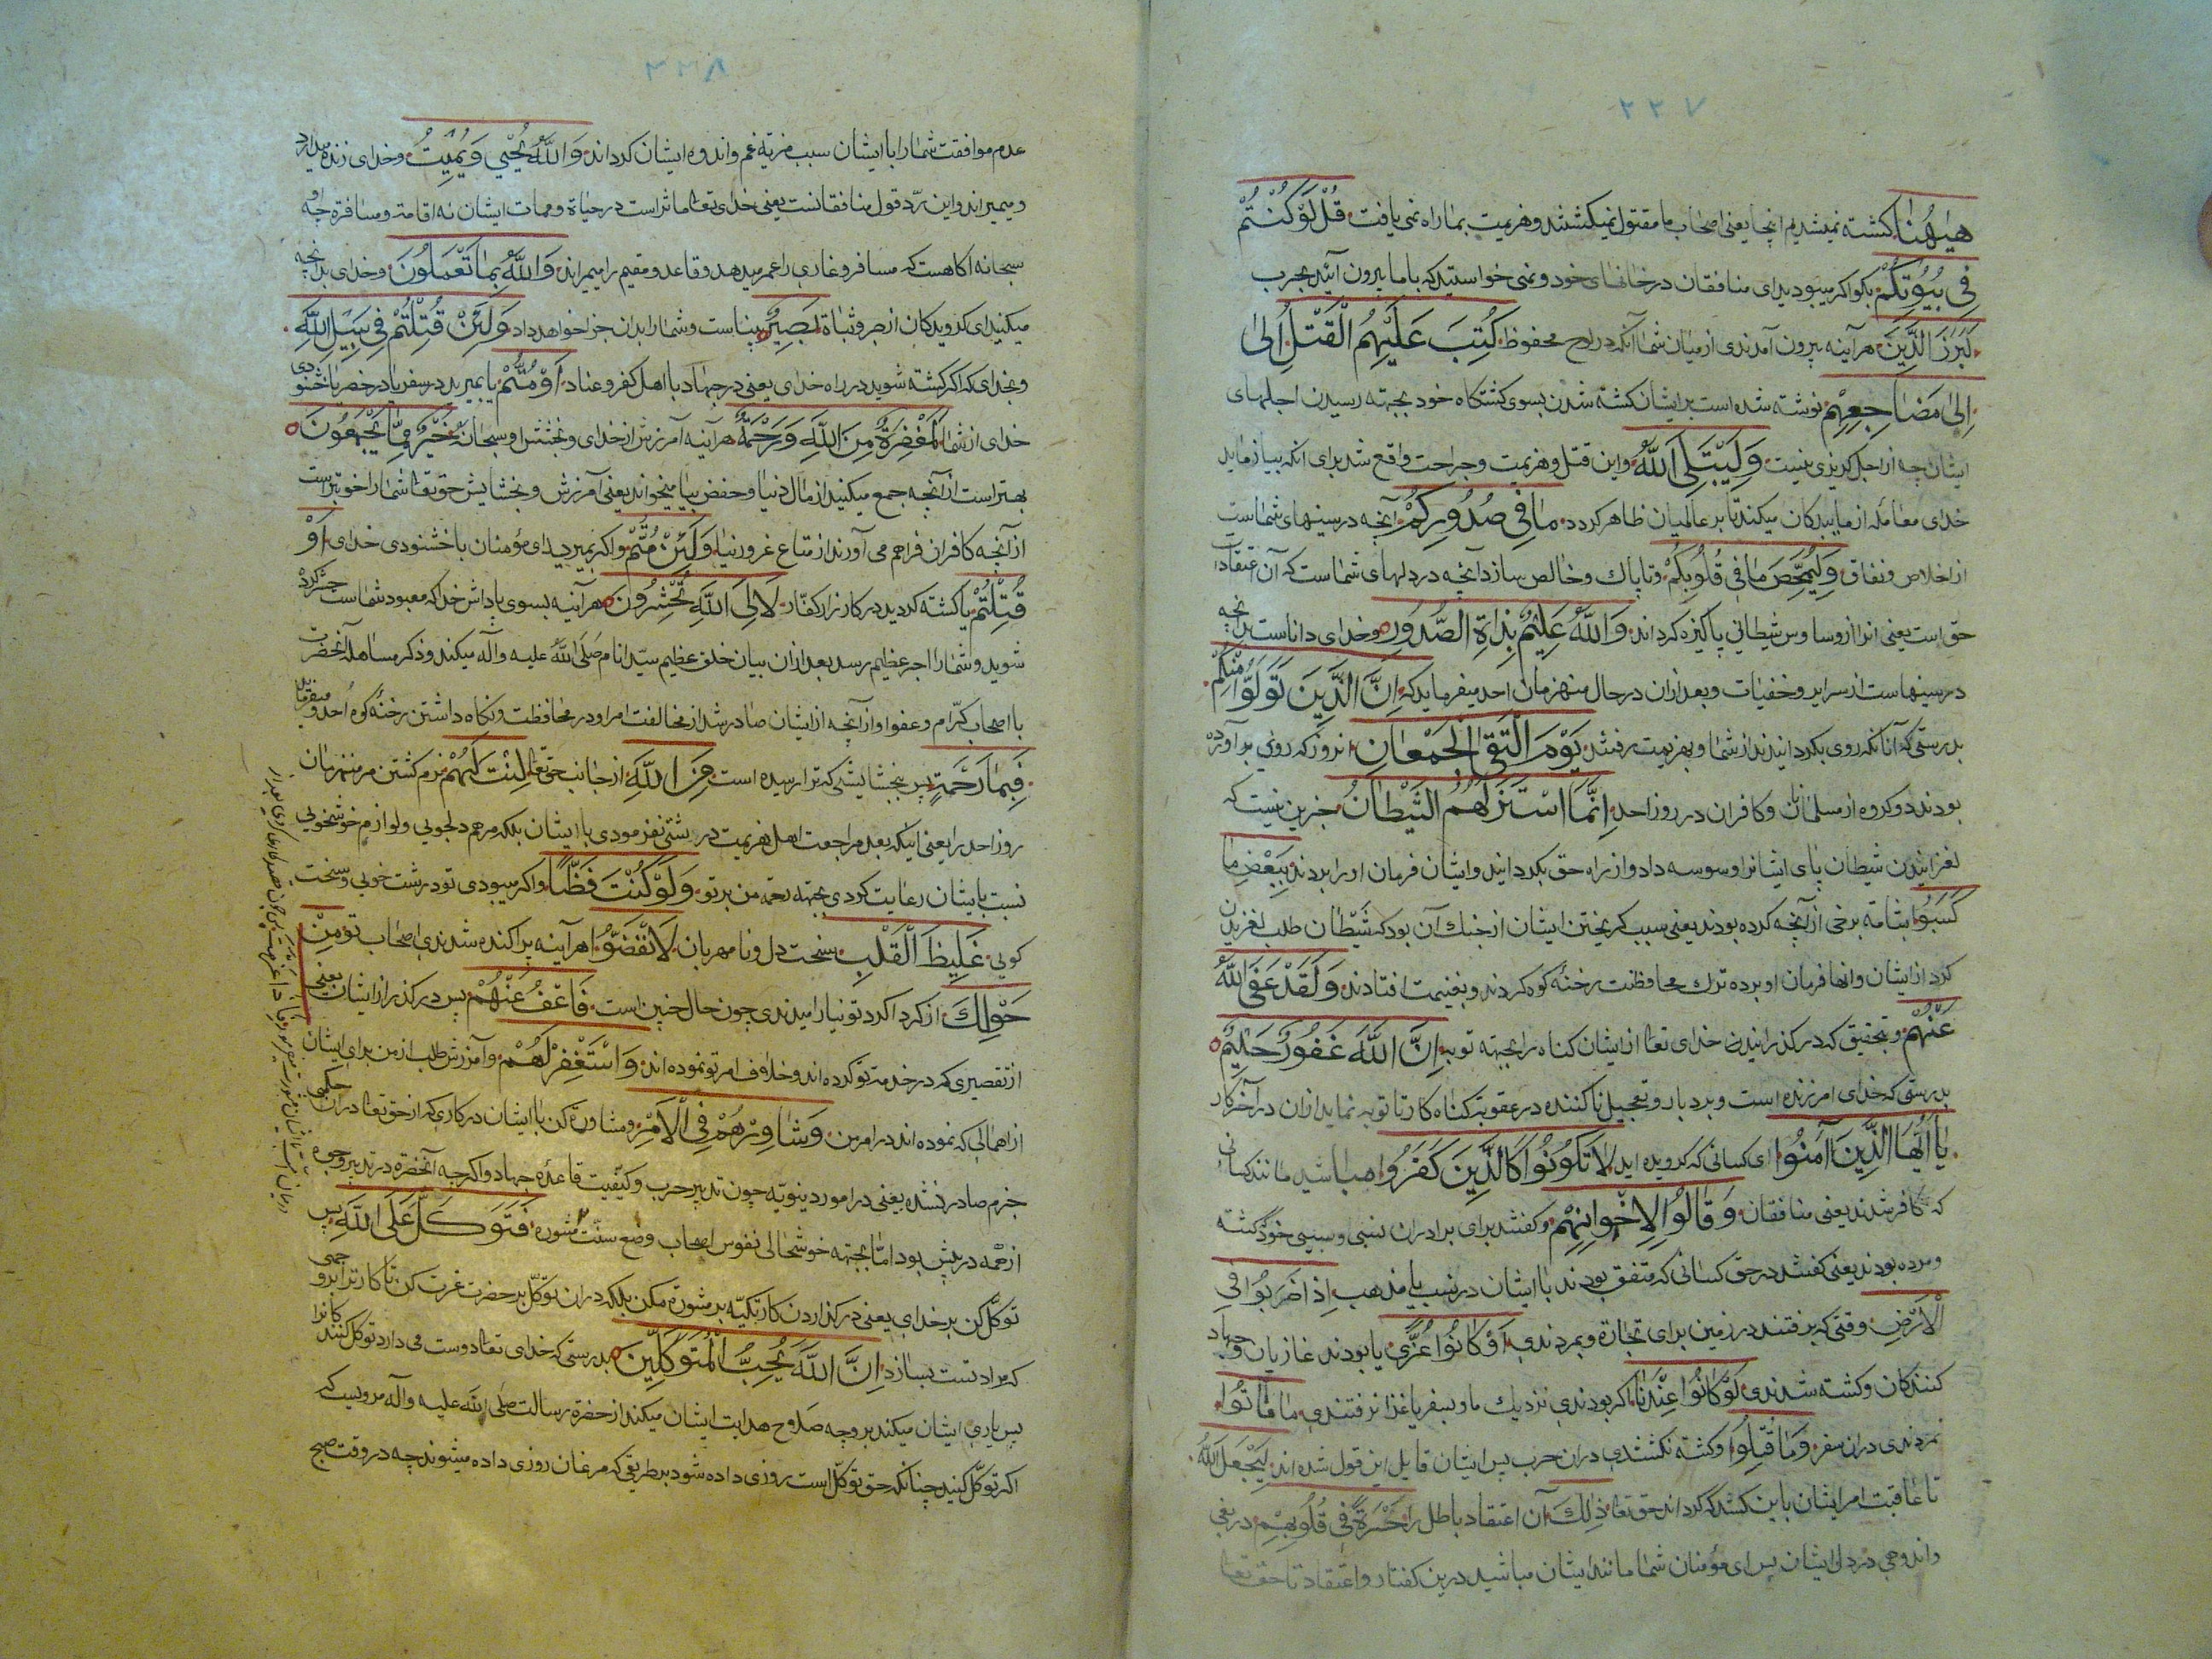 ۲۲۷
هٰیهُنٰا کشته نمیشدیم اینجا یعنی اصحاب ما مقتول نمیکشتند و هزیمت بما راه نمی یافت قُلْ لَوْ كُنْتُمْ
فِي بُيُوتِكُمْ بکو اکر میبودید ای منافقان در خانهای خود و نمی خواستید که با ما بیرون آئید بحرب
لَبَرَزَ الَّذِينَ هر آینه بیرون آمدندی از میان شما آنکه در لوح محفوظ كُتِبَ عَلَيْهِمُ الْقَتْلُ اِلىٰ
اِلىٰ مَضَاجِعِهِمْ نوشته شده است بر ایشان کشته شدن بسوی کشتکاه خود بجهته رسیدن اجلهای
ایشان چه از اجل کریزی نیست وَلِيَبْتَلِيَ اللّٰهُ واین قتل و هزیمت و جراحت واقع شد برای انکه بیازماید
خدای معامله ازمایندکان میکند تا بر عالمیان ظاهر کردد مٰا فِي صُدُورِكُمْ آنچه در سینهای شماست
از اخلاص و نفاق وَلِيُمَحِّصَ مٰا فِي قُلُوبِكُمْ وتا پاك و خالص سازد آنچه در دلهای شماست که آن اعتقاد
حق است یعنی انرا از وساوس شیطانی پاکیزه کرداند وَاللّٰهُ عَلِيمٌ بِذٰاةِ الصُّدُورِ وخدای داناست بدانچه
در سینهاست از سراید و خفیات و بعد ازان در حال منهزمان احد میفرماید که اِنَّ الَّذِينَ تَوَلَّوْا مِنْكُمْ
بدرستی که آنانکه روی بکردانیدند از شما و بهزیمت رفتند يَوْمَ الْتَقَى الْجَمْعٰانِ انروز که روی بهم آورده
بودند دو کروه از مسلمانان و کافران در روز احد اِنَّمَا اسْتَزَلَّهُمُ الشَّيْطٰانُ جزین نیست که
لغزانیدن شیطان پای ایشانرا وسوسه داد و از راه حق بکردانید وایشان فرمان او را بردند بِبَعْضِ مٰا
كَسَبُوا بشامة برخی از آنچه کرده بودند یعنی سبب کریختن ایشان از جنك آن بود که شَیْطان طلب لغزیدن
کرد از ایشان وانها فرمان او برده ترك محافظت رخنهٔ کوه کردند و بغنیمت افتادند وَلَقَدْ عَفَى اللّٰهُ
عَنْهُمْ وبتحقیق که در کذرانیدن خدای تعالی از ایشان کناه را بجهته توبه اِنَّ اللّٰهَ غَفُورٌ حَلِيمٌ
بدرستی که خدای امرزنده است و بردبار و تعجیل ناکننده در عقوبة کناه کار تا توبه نماید ازان در آخر کار
يٰا اَيُّهَا الَّذِينَ آمَنُوا ای کسانی که کرویده اید لٰا تَكُونُوا كَالَّذِينَ كَفَرُوا مباشید مانند کسانی
که کافر شدند یعنی منافقان وَقٰالُوا لِاِخْوٰانِهِمْ وکفتند برای برادران نسبی و سببی خود کشته
ومرده بودند یعنی کفتند در حق کسانی که متفق بودند با ایشان در نسب یا مذهب اِذٰا ضَرَبُوا فِي
الْاَرْضِ وقتی که برفتند در زمین برای تجارة و بمردندی اَوْ كٰانُوا غُزًّى یا بودند غازیان و جهاد
کنندکان و کشته شدندی لَوْ كٰانُوا عِنْدَنٰا اکر بودندی نزدیك ما و بسفر یا غزا نرفتندی مٰا مٰاتُوا
نمردندی دران سفر وَمٰا قُتِلُوا وکشته نکشتندی دران حرب پس ایشان قایل این قول شده اند لِيَجْعَلَ اللّٰهُ
تا عاقبت امر ایشان باین کشد که کرداند حق تعالی ذٰلِكَ آن اعتقاد باطل را حَسْرَةً فِي قُلُوبِهِمْ دریغی
واندوهی در دل ایشان پس ای مؤمنان شما مانند ایشان مباشید درین کفتار و اعتقاد تا حق تعالی
۲۲۸
عدم موافقت شما را با ایشان سبب مزیة غم واندوه ایشان کرداند وَاللّٰهُ يُحْيِي وَيُمِيتُ وخدای زنده میدارد
ومیمیراند واین رَدّ قول منافقانست یعنی خدای تعالی مؤثر است در حیاة وممات ایشان نه اقامة ومسافرة چه او
سبحانه آکاهست که مسافر وغازی را عمر میدهد و قاعد و مقیم را میمیراند وَاللّٰهُ بِمٰا تَعْمَلُونَ وخدای بدانچه
میکنید ای کرویدکان از صبر و ثباة بَصِيرٌ بیناست وشما را بدان جزا خواهد داد وَلَئِنْ قُتِلْتُمْ فِي سَبِيلِ اللّٰهِ
و بخدای که اکر کشته شوید در راه خدای یعنی در جهاد با اهل کفر و عناد اَوْ مُتُّمْ یا بمیرید در سفر یا در حضر با خشنودی
خدای از شما لَمَغْفِرَةٌ مِنَ اللّٰهِ وَرَحْمَةٌ هر آینه آمرزش از خدای و بخشش او سبحانه خَيْرٌ مِمّٰا يَجْمَعُونَ
بهتر است از آنچه جمع میکنید از مال دنیا وحفص بیا میخواند یعنی آمرزش و بخشایش حق تعالی شما را خوبتر است
از آنچه کافران فراهم می آورند از متاع غرور دنیا وَلَئِنْ مُتُّمْ واکر بمیرید ای مؤمنان با خشنودی خدای اَوْ
قُتِلْتُمْ یا کشته کردید در کارزار کفّار لَاِلَى اللّٰهِ تُحْشَرُونَ هر آینه بسوی پاداش خدا که معبود شماست حشر کرده
شوید وشما را اجر عظیم رسد بعد ازان بیان خلق عظیم سیّد انام صَلَّی اللّٰه علیه وآله میکند وذکر مساهلهٔ آنحضرت
با اصحاب کرّام وعفو او از آنچه از ایشان صادر شد از مخالفت امر او در محافظت ونکاه داشتن رخنهٔ کوه اُحد و میفرماید
فَبِمٰا رَحْمَةٍ پس ببخشایشی که ترا رسیده است مِنَ اللّٰهِ از جانب حق تعالی لِنْتَ لَهُمْ نرم کشتن مر منهزمان
روز احد را یعنی اینکه بعد مراجعت اهل هزیمت درشتی نفرمودی با ایشان بلکه مرهم دلجویی ولوازم خوشخویی
نسبت بایشان رعایت کردی بجهته رحمة من بر تو وَلَوْ كُنْتَ فَظًّا واکر میبودی تو درشت خوی و سخت
کوی غَلِيظَ الْقَلْبِ سخت دل ونا مهربان لَانْفَضُّوا هر آینه پراکنده شدندی اصحاب تو مِنْ
حَوْلِكَ از کرداکرد تو نیارامیدندی چون حال چنین است فَاعْفُ عَنْهُمْ پس در کذر از ایشان یعنی
از تقصیری که در خدمة تو کرده اند وخلاف امر تو نموده اند وَاسْتَغْفِرْ لَهُمْ وآمرزش طلب از من برای ایشان
از اهمالی که نموده اند در امر من وَشٰاوِرْهُمْ فِي الْاَمْرِ ومشاورة کن با ایشان در کاری که از حق تعالی دران حکمی
جزم صادر نشده یعنی در امور دینویّه چون تدبیر حرب وکیفیّت قاعدهٔ جهاد واکرچه آنحضرة در تدبیر وجوه
از همه در پیش بود امّا بجهته خوشحالی نفوس اصحاب وضع سنّت مشوره فَتَوَكَّلْ عَلَى اللّٰهِ پس
توکّل کن بر خدای یعنی در کذاردن کار تکیّه بر مشورة مکن بلکه دران توکّل بر حضرت عزت کن تا کار ترا بر وجهی
که مراد تست بسازد اِنَّ اللّٰهَ يُحِبُّ الْمُتَوَكِّلِينَ بدرستی که خدای تعالی دوست می دارد توکل کنندکانرا
پس یاری ایشان میکند بر وجه صلاح هدایت ایشان میکند از حضرة رسالت صلی اللّٰه علیه وآله مرویست که
اکر توکّل کنید چنانکه حق توکّل است روزی داده شود بطریقی که مرغان روزی داده میشوند چه در وقت صبح